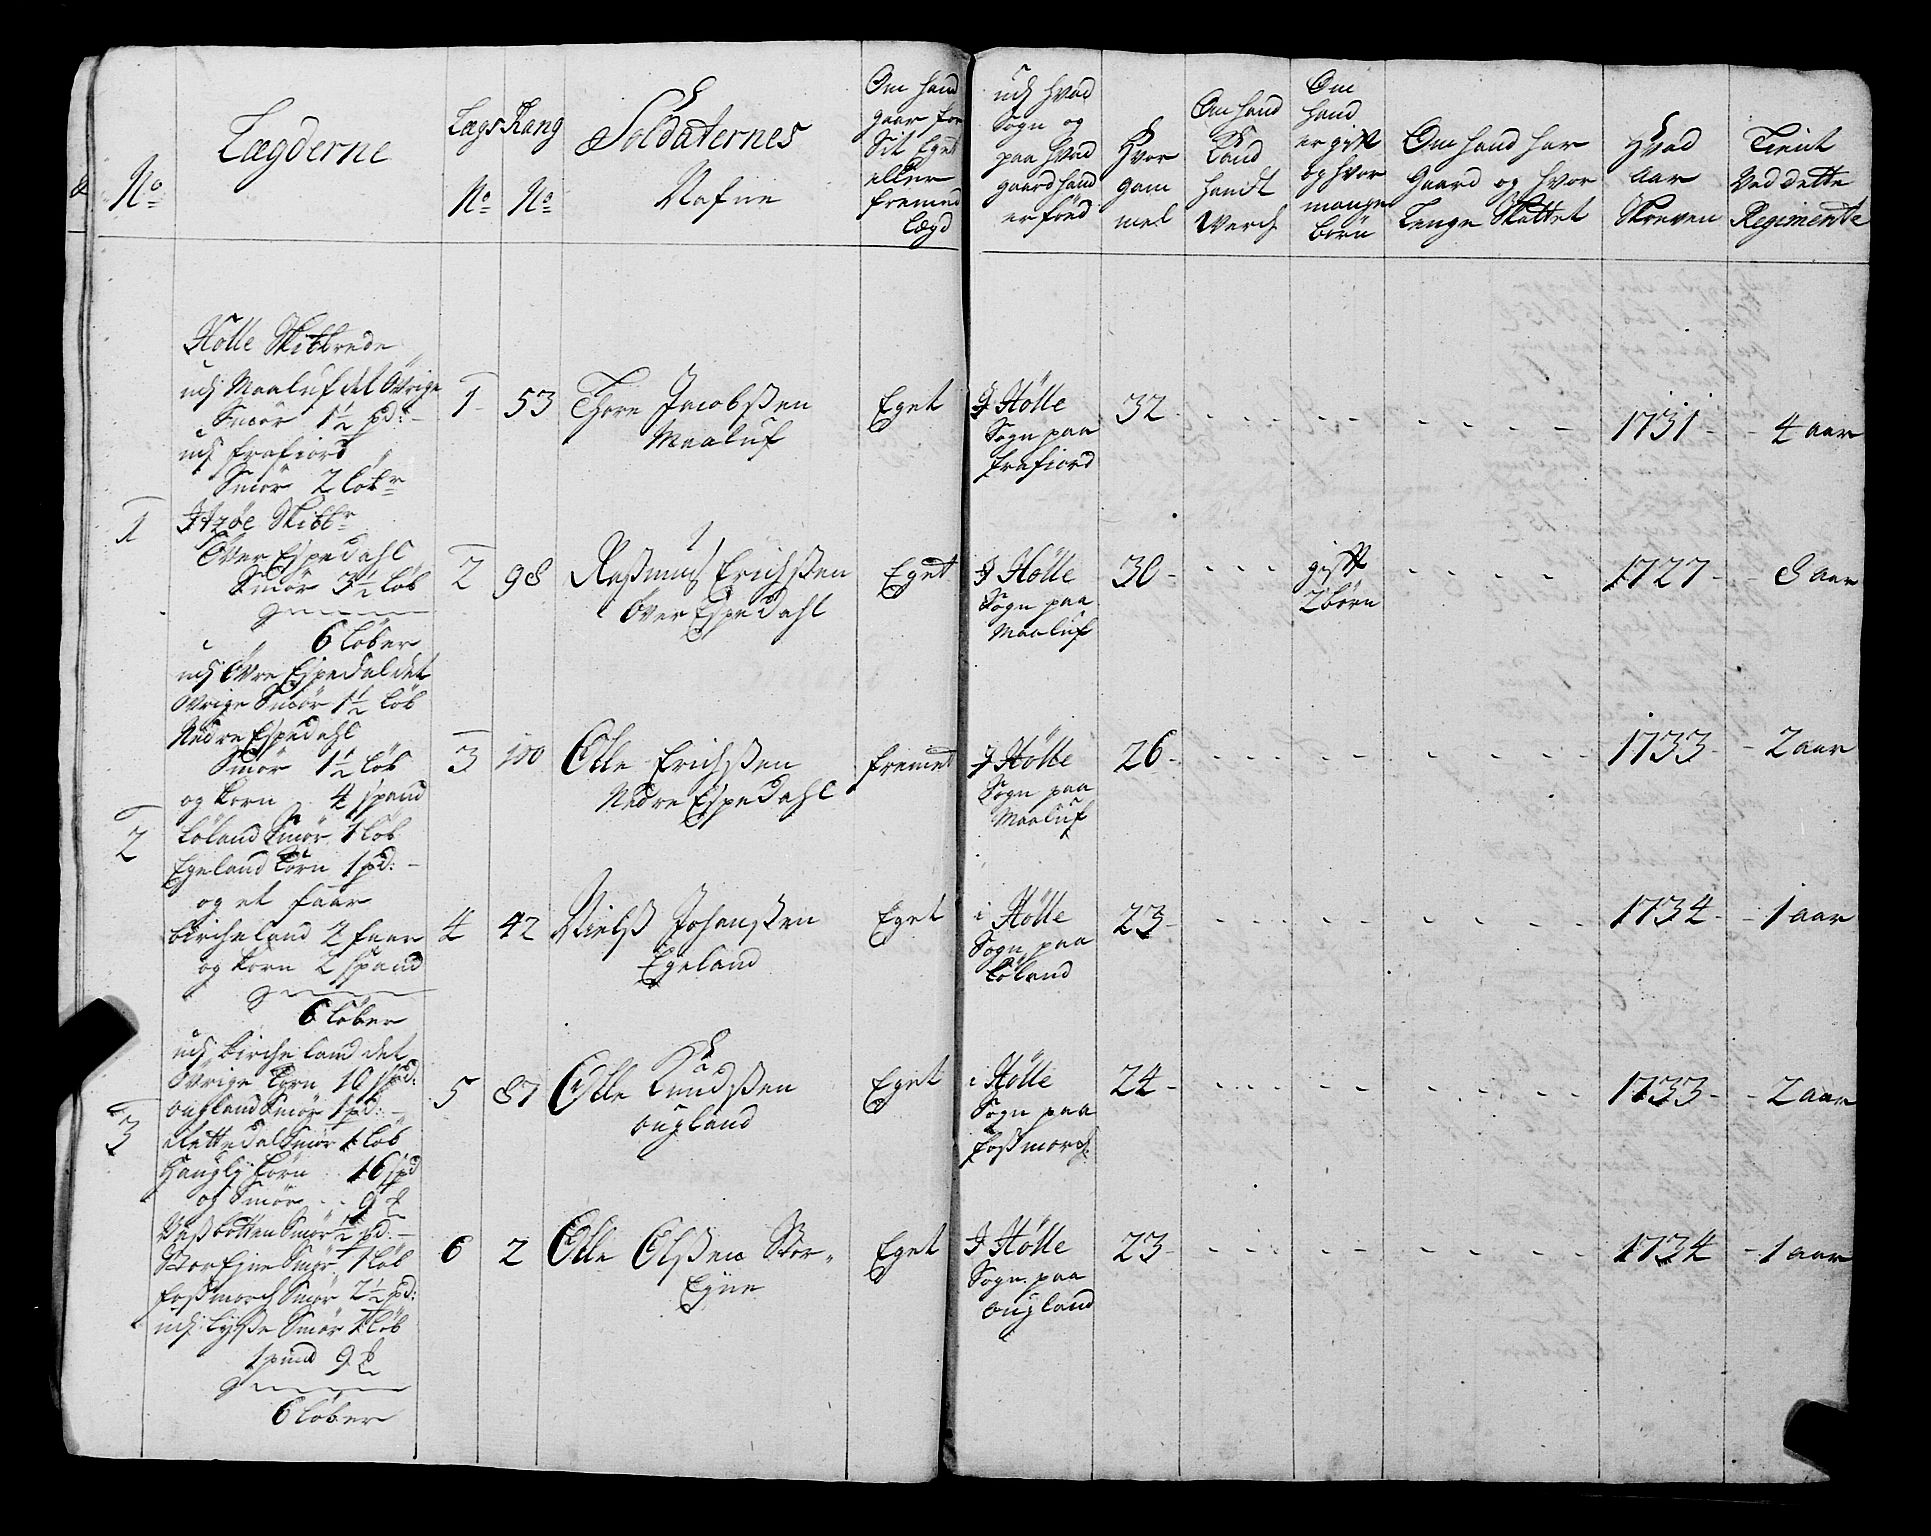 No
Lægderne
Lægs No
Rang No
Soldaternes
Nafne
Om hand
gaar for
Sit Eget
eller
fremed
Lægd
udj hvad
Sogn og
paa hvad
gaard hand
er föed
Hvor
gam
mel
Om hand
kand
handt
Werch
Om
hand
er gift
og hvor
mange
börn
Om hand har
Gaard og hvor
Lenge Skattet
Hvad
aar
Skreven
Tient
Ved dette
Regimente
1
Hölle Skibbrede
udj Maaluf det Övrige
Smör 1½ pd: -
udj frafiord
Smör 2 löbr
Skibbr
Over Espedahl
Smör 3½ löb
6 Löber
1 53 Thore Jacobsen
Maaluf
Eget
J Hölle
Sogn paa
frafiord
32
1731
4 aar
2 98 Rasmus Erichsen
Över Espedahl
Eget
J Hölle
Sogn paa
Maaluf
30
gift
2 börn
1727
8 aar
2
udj Övre Espedal det
Övrige Smör 1½ löb
Nedre Espedahl
Smör 1½ löb
og korn 4 spand
Löland Smör 1 löb
Egeland korn 1 pd: -
og et faar
Bircheland 2 faar
og korn 2 spand
6 Löber
3 100 Olle Erichsen
Nedre Espedahl
fremet
J Hölle
Sogn paa
Maaluf
26
1733
2 aar
4 42 Niels Johansen
Egeland
Eget
i Hölle
Sogn paa
Löland
23
1734
1 aar
3
udj Bircheland det
Övrige korn 10 spd:
ougland Smör 1 pd: -
Smör 1 löb
korn 16 spd
og Smör 9
Smör ½ pd. -
Stor Eyne Smör 1 löb
fosmorch Smör 2½ pd:
udj Lysse Smör 1 löb
1 pund 9
6 Löber
5 87 Olle Knudsen
ougland
Eget
i Hölle
Sogn paa
fosmorch
24
1733
2 aar
6 2 Olle Olsen Stor-
Eyne
Eget
J Hölle
Sogn paa
ougland
23
1734
1 aar